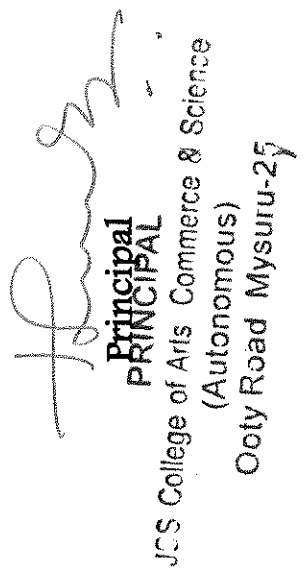 Principal
PRINCIPAL
JSS College of Arts Commerce & Science
(Autonomous)
Ooty Road Mysuru-25